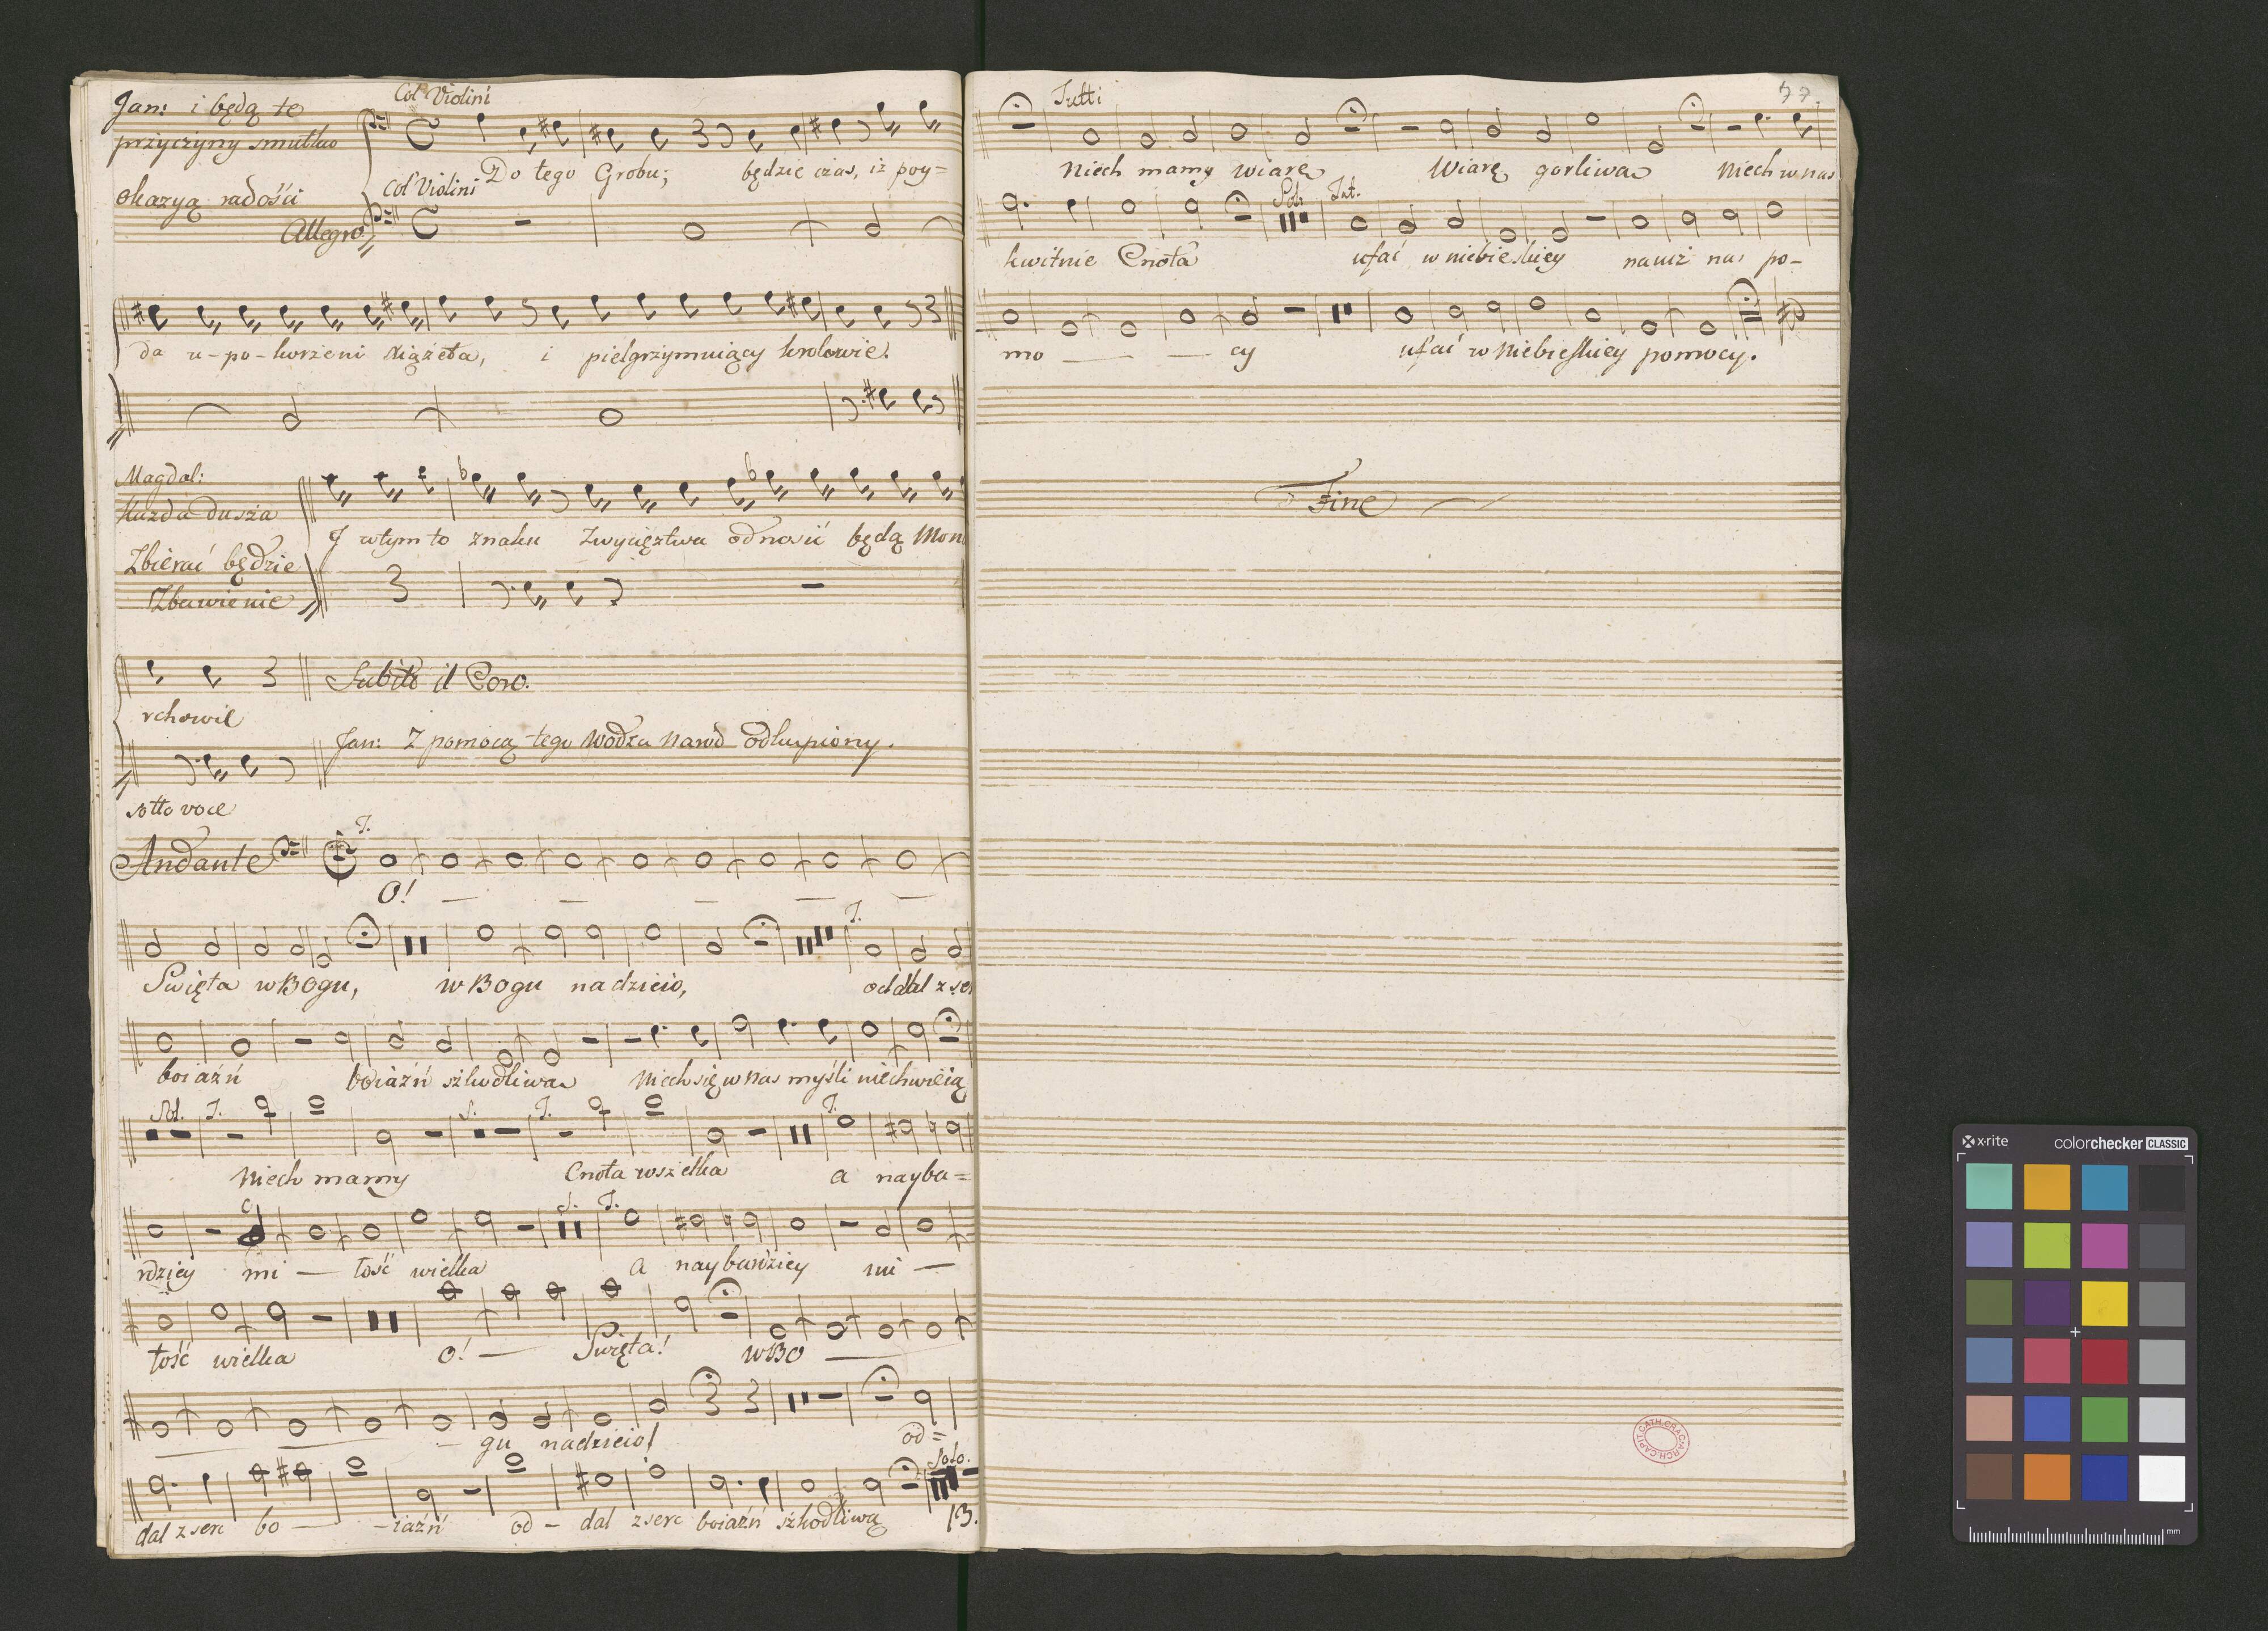 Jan: i będą te
Col Violini
przyczyny smutku
Do tego Grobu; będzie czas, iż poy=
okazyą radości
Col Violini
Allegro.
da u-po-korzeni Xiążęta, i pielgrzymuiący krolowie.
Magdal:
Każda dusza
J w tym to znaku Zwycięztwa odnosić będą Mona
Zbierać będzie
Zbawienie
Subito il Coro.
rchowie
Jan: Z pomocą tego Wodza Narod Odkupiony.
sotto voce
Andante
T.
O! — — — — —
T.
Swięta w Bogu, w Bogu nadzieio, oddal z serc
boiaźń boiaźń szkodliwa Niech się w nas myśli niech wieią
Sol. T. S. T. T.
Niech mamy Cnota wszelka a nayba=
S. T.
rdziey mi — łość wielka a naybardziey mi —
łość wielka O! — Swięta! w Bo —
— gu nadzieio! od=
Solo.
dal z serc bo — -iaźń od - dal z serc boiaźń szkodliwą 13.
77.
Tutti
Niech mamy wiarę Wiarę gorliwa Niech w nas
Sol: Tut.
kwitnie Cnota ufać w niebieskiey naucz nas po-
mo — — — cy ufać w Niebieskiey pomocy.
Fine
ARCH. CAPIT. CATH. CRAC.
x-rite colorchecker CLASSIC
mm